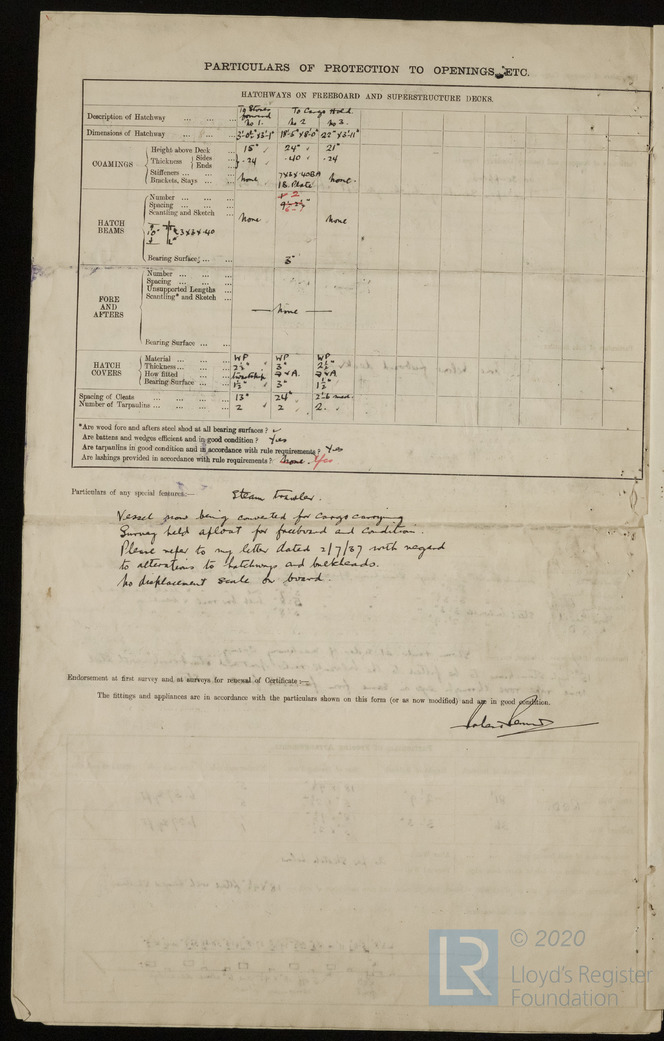 PARTICULARS OF PROTECTION TO OPENINGS, ETC.
HATCHWAYS ON FREEBOARD AND SUPERSTRUCTURE DECKS.
Description of Hatchway ... ... ... To Stores forward No 1. To Cargo Hold No 2 No 3.
Dimensions of Hatchway ... ... ... 3'-0½" x 3'-1" 18'-5" x 8'-0" 22" x 3'-11"
COAMINGS
Height above Deck ... 15" 24" 21"
Thickness { Sides Ends .24 .40 .24
Stiffeners ... ...
Brackets, Stays ... None 7x3x.40BA 18 Plate None.
HATCH BEAMS
Number ... ... ... 2
Spacing ... ... ...
Scantling and Sketch ... None None
3x3x.40
Bearing Surface ... ... 3"
FORE AND AFTERS
Number ... ... ...
Spacing ... ... ...
Unsupported Lengths ...
Scantling* and Sketch ...
None
Bearing Surface ... ...
HATCH COVERS
Material ... ... ... WP WP WP
Thickness ... ... 2½" 3" 2½"
How fitted ... ... thwartship F & A. F & A
Bearing Surface ... ... 1½" 3" 1½"
Spacing of Cleats ... ... ... ... 13" 24"
Number of Tarpaulins ... ... ... ... 2 2 2.
*Are wood fore and afters steel shod at all bearing surfaces?
Are battens and wedges efficient and in good condition? Yes
Are tarpaulins in good condition and in accordance with rule requirements? Yes
Are lashings provided in accordance with rule requirements? None. Yes
Particulars of any special features:— Steam Trawler.
Vessel now being converted for cargo carrying
Survey held afloat for freeboard and condition.
Please refer to my letter dated 2/7/37 with regard
to alterations to hatchways and bulkheads.
No displacement scale on board.
Endorsement at first survey and at surveys for renewal of Certificate:—
The fittings and appliances are in accordance with the particulars shown on this form (or as now modified) and are in good condition.
LR
© 2020
Lloyd's Register
Foundation